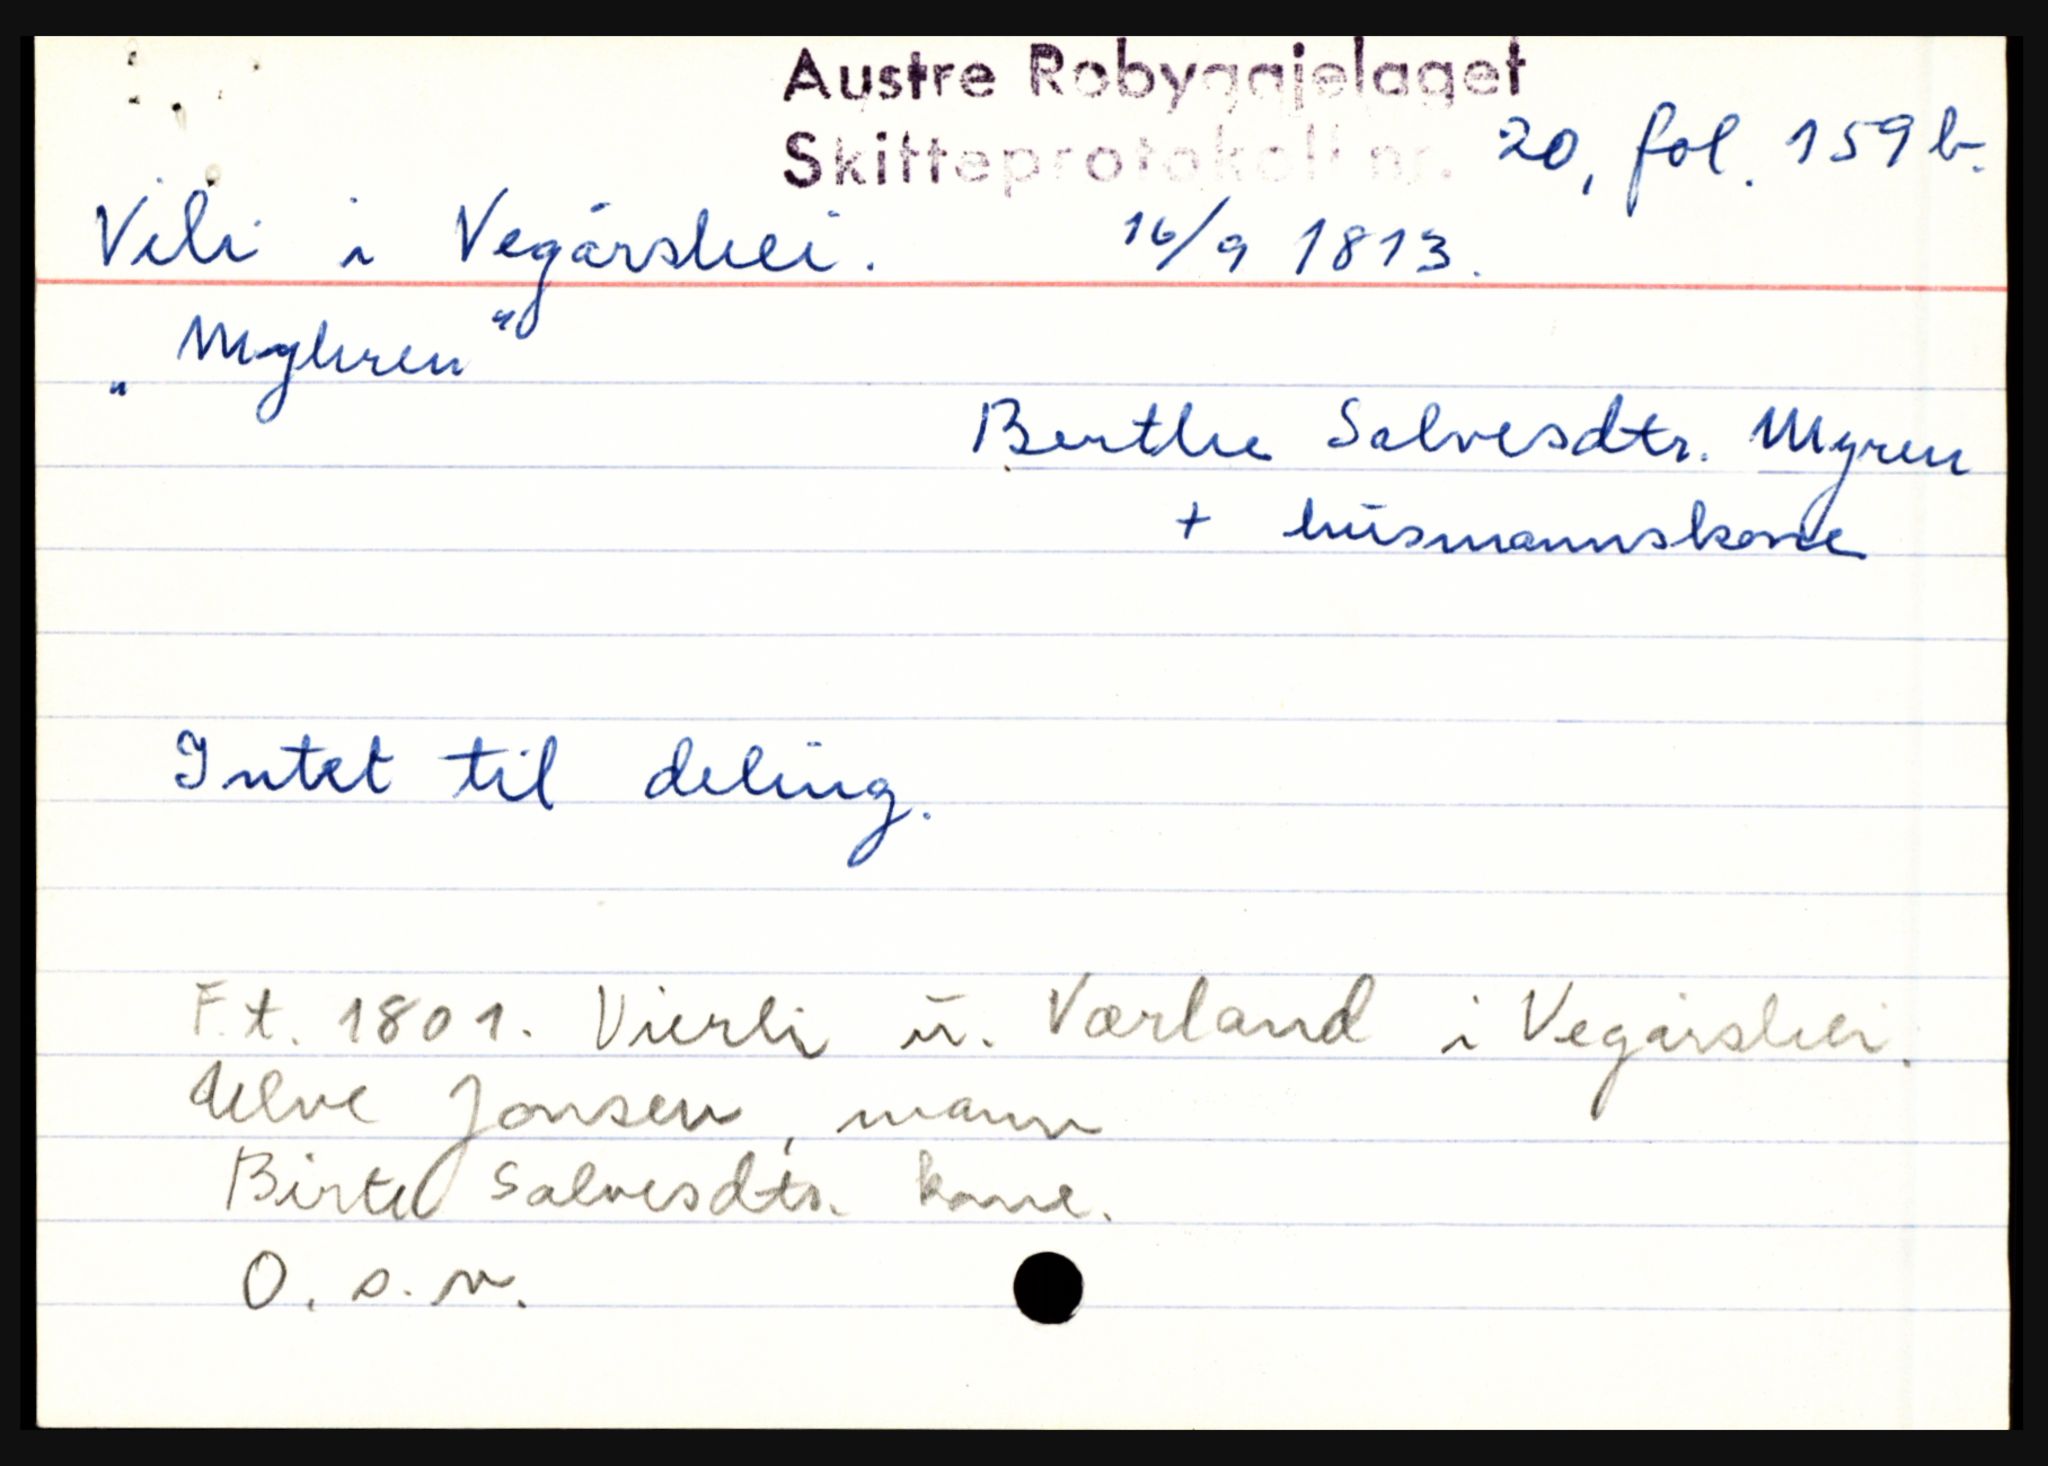 Austre Robyggjelaget
Skifteprotokoll nr. 20, fol. 159 b.
Vili i Vegårshei. 16/9 1813.
"Myhren"
Berthe Salvesdtr. Myren
+ husmannskone
Intet til deling.
F.t. 1801. Vierli u. Værland i Vegårshei.
Ulve Jonsen, mann
Birte Salvesdtr. kone.
O. s. v.